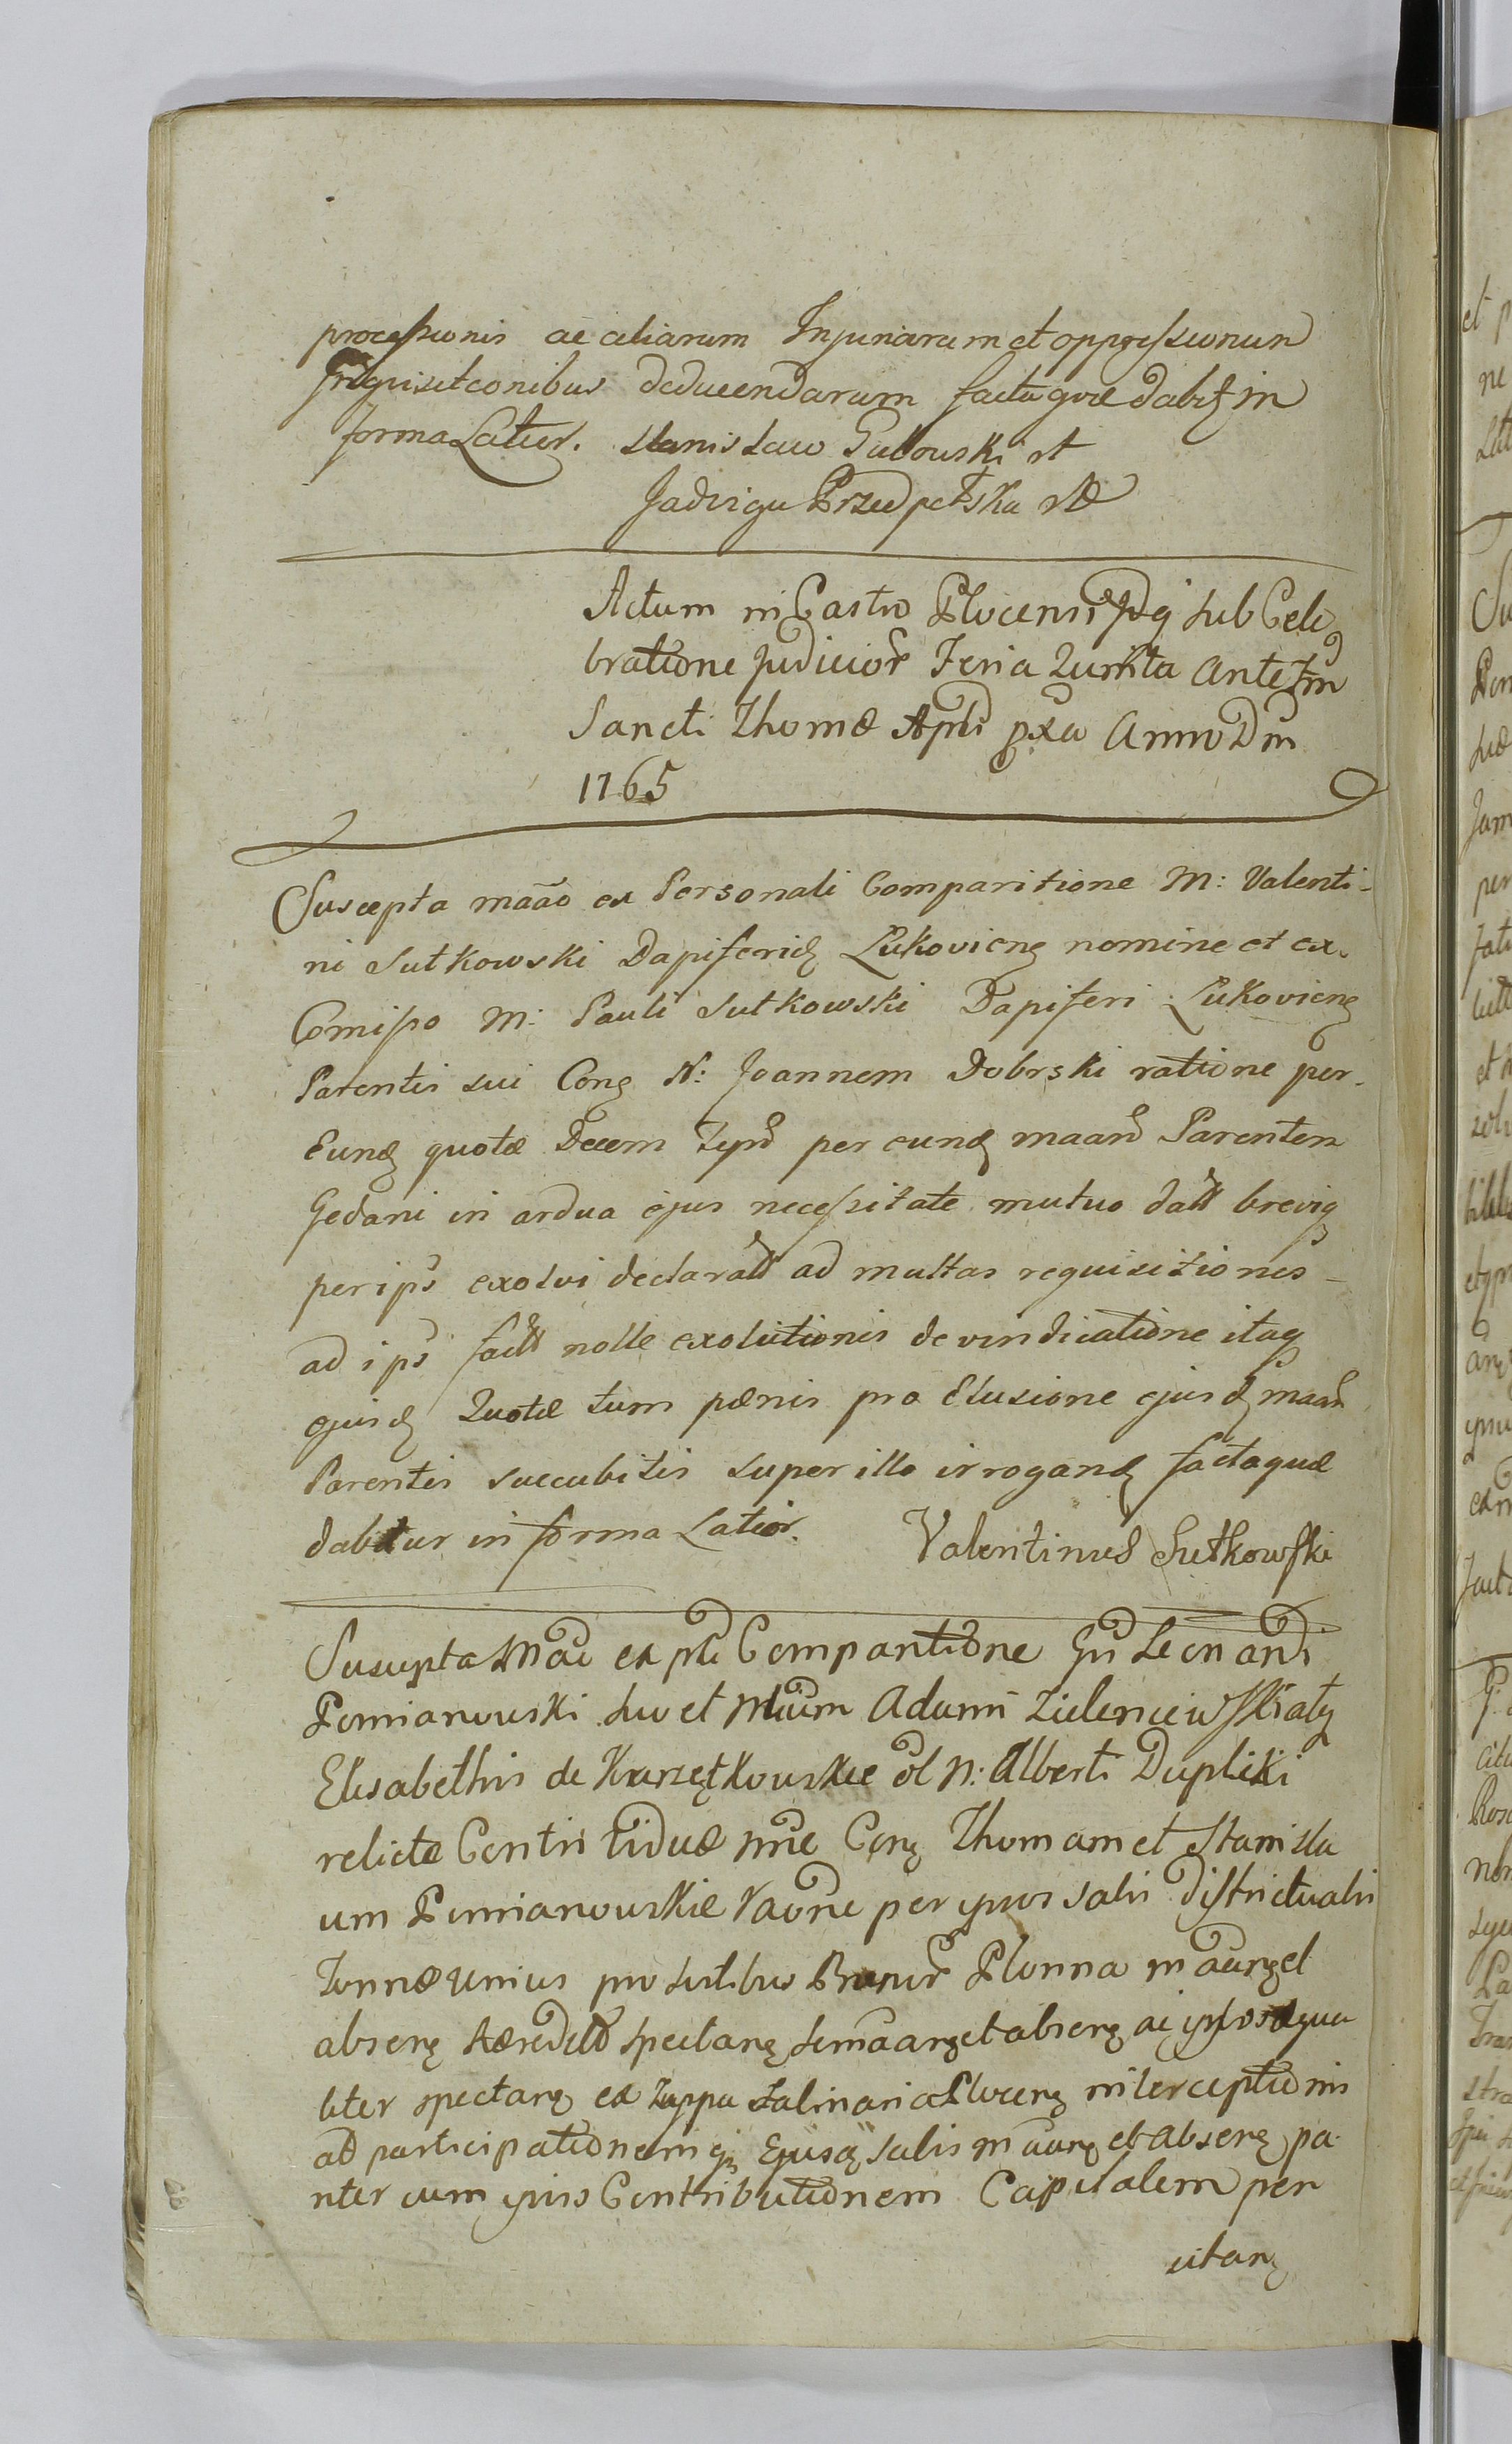 processionis ac aliarum Injuriarum et oppressionum
Inquisitionibus deducendarum factaque dabit in
forma Latior. Stanislaw Gutowski st
Jadviga Przedpełska st
Actum in Castro Plocensi sub Cele
bratione Judicior Feria Quinta Ante Fm
Sancti Thomæ Apli pxa Anno Dni
1765
Suscepta maao ex Personali Comparitione M: Valenti-
ni Sutkowski Dapiferid Lukoviens nomine et ex
Comisso M: Pauli Sutkowski Dapiferi Lukoviens
Parentis sui Cong N: Joannem Dobrski ratione per
Eund quotæ Decem Typs per eund maand Parentem
Gedani in ardua ejus necessitate mutuo datt breviq
per ips exolvi declaratt ad multas requisitiones
ad ips factt nolle exolutionis de vindicatione itaq
ejusd Quotæ tum pænis pro Elusione ejusd maan
Parentis succubitis super illo irrogand factaquæ
dabitur in forma Latior. Valentinus Sutkowski
Suscepta Mao ex pli Comparitione Gn Leonardi
Pomianowski suo et Adami Zielencewski atq
Elisabethis de Karzętkowskie ol N: Alberti Duplicki
relictæ Consortis viduæ nne Cong Thomam et Stanisla
um Pomianowskie raone per ipsos salis districtualis
Tonnæ unius pro sortibus Bonor Plonna maang et
abseng hæredit spectang semaang et abseng ac ipsos æqua
liter spectang ex Zuppa Salinaria Plocens interceptionis
ad participationemq Ejusq salis maang et abseng pa
riter cum ipsis Contributionem Capitalem per
citang